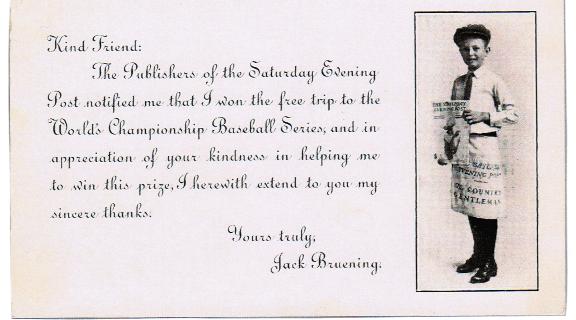 Kind Friend:
The Publishers of the Saturday Evening
Post notified me that I won the free trip to the
World's Championship Baseball Series; and in
appreciation of your kindness in helping me
to win this prize, I herewith extend to you my
sincere thanks.
Yours truly,
Jack Bruening.
THE SATURDAY
EVENING POST
EVENING POST
THE COUNTRY
GENTLEMAN